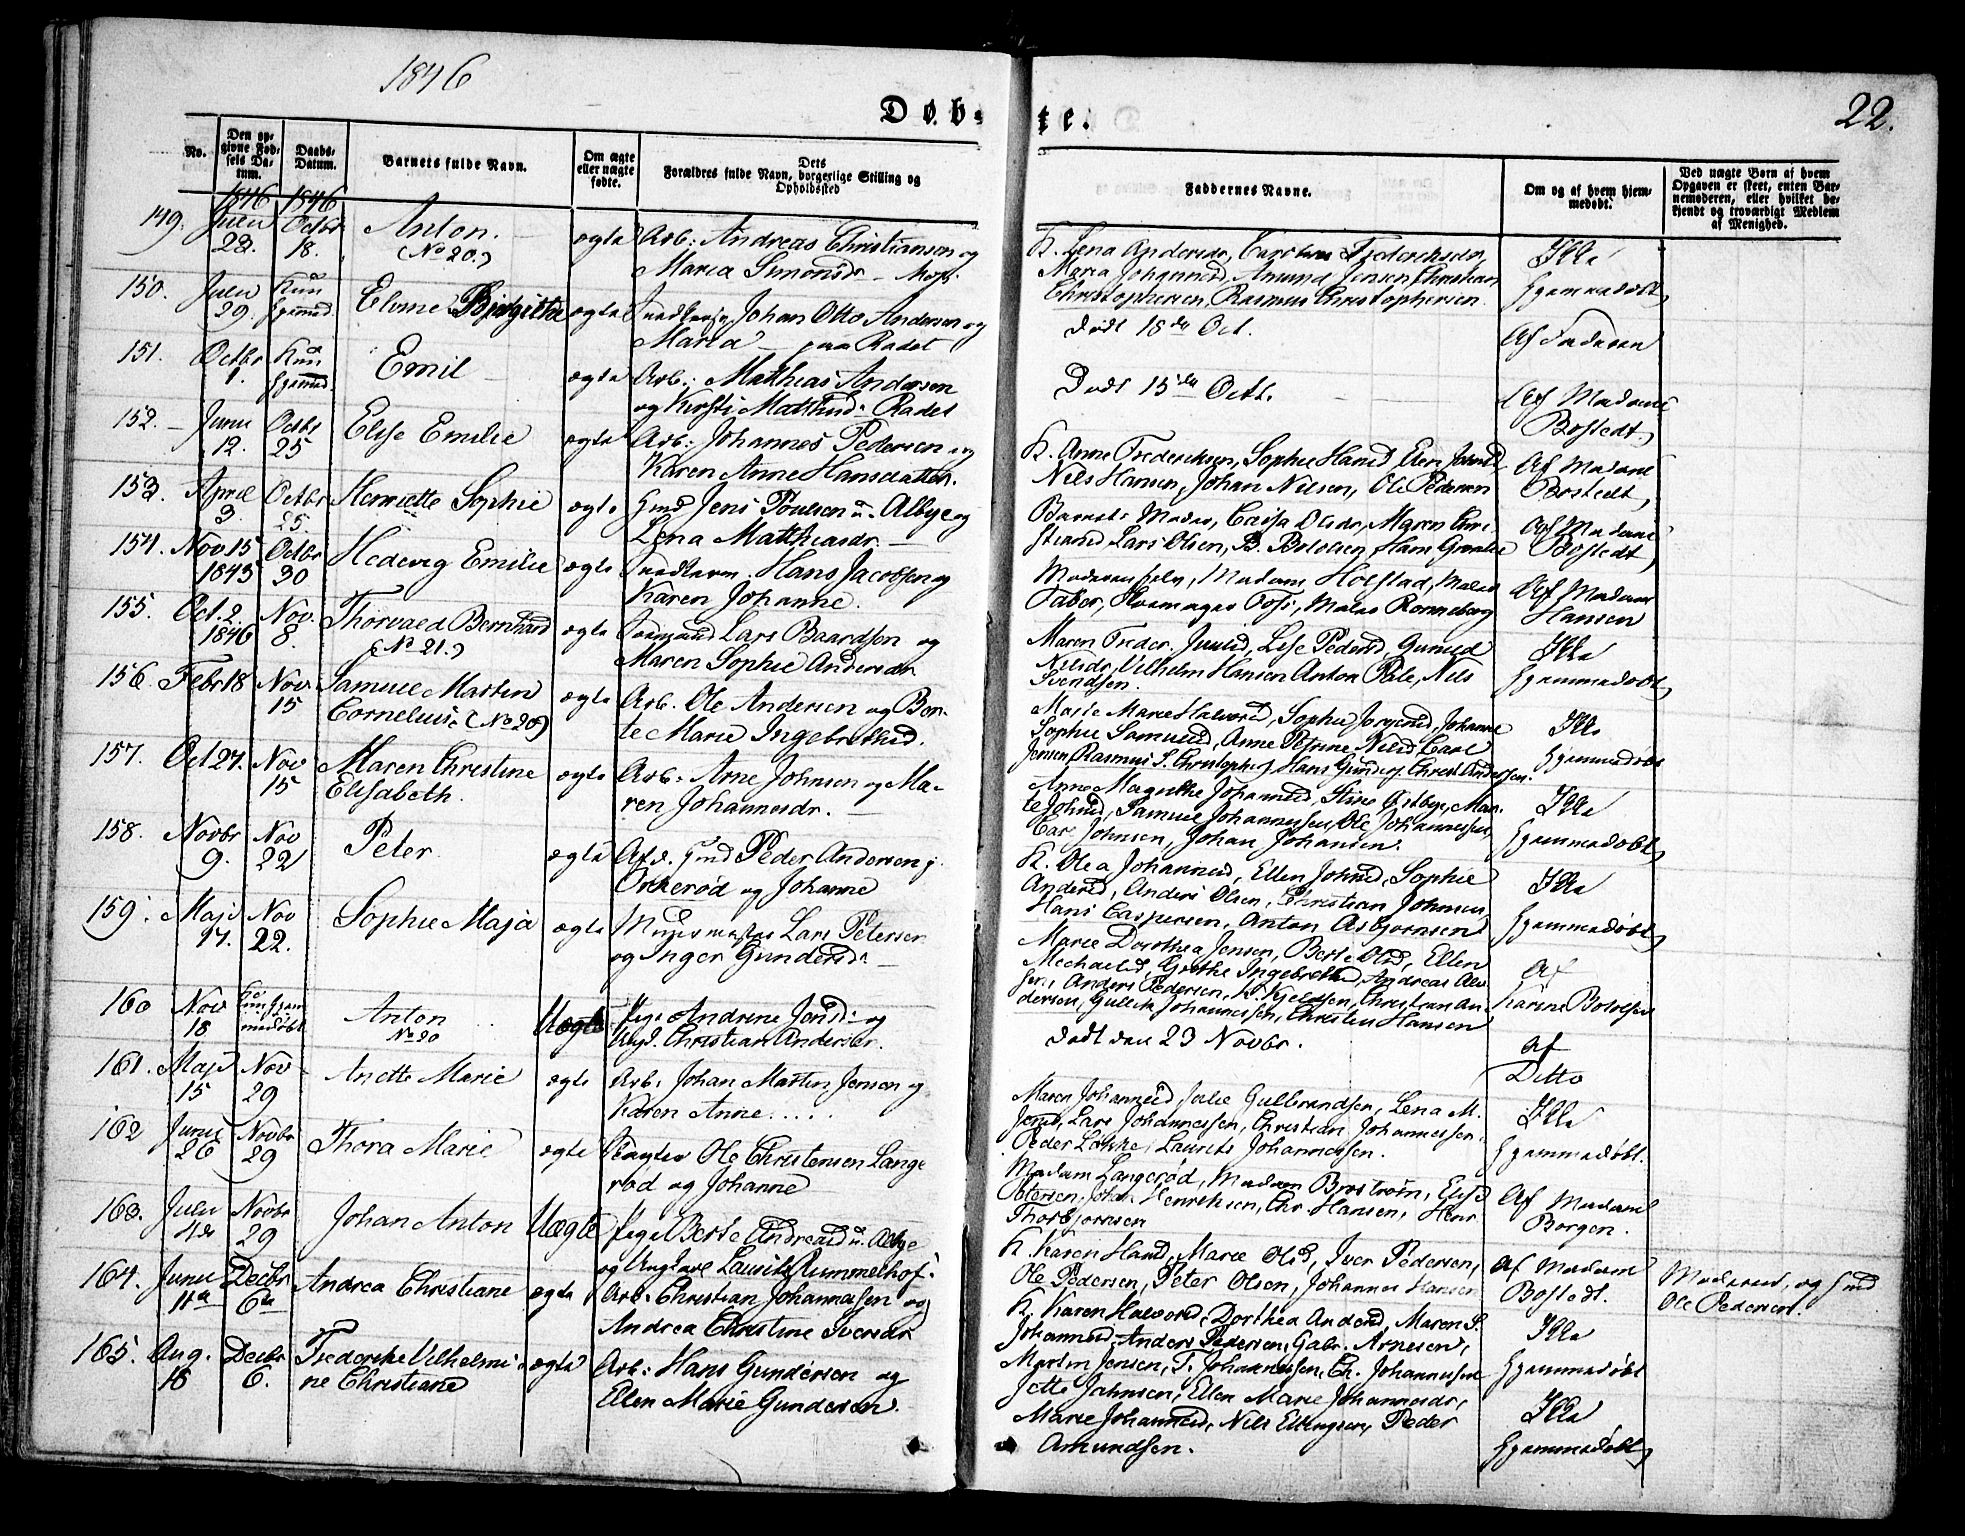 1846
22.
Døb-
te.
No.
Den op-
givne Fød-
sels Da-
tum.
Daabs-
Datum.
Barnets fulde Navn.
Om ægte
eller uægte
fødte.
Dets
Forældres fulde Navn, borgerlige Stilling og
Opholdssted
Faddernes Navne.
Om og af hvem hjem-
medøbt.
Ved uægte Børn af hvem
Opgaven er skeet, enten Bar-
nemoderen, eller hvilket be-
kjendt og troværdigt Medlem
af Menighed.
1846 1846
149. Juli 23. Octbr 18.
Anton.
(No 20.)
ægte
Arb: Andreas Christiansen og
Maria Simonsdr - Moss.
K. Lena Andersdr, Frederiksdr,
Maria Johannesd, Amund Jensen, Christian
Christophersen, Rasmus Christophersen.
Ikke
hjemmedøbt
150. Juli 29. Kun hjemmed.
Elvine Birgitta
ægte
Johan Otto Andersen og
Maria - paa Radet
Dødt 18de Oct.
Af Faderen
151. Octbr 1. Kun hjemmed
Emil
ægte
Arb: Mathias Andersen
og Kirsti Matthisd: Radet
Dødt 15de Octr.
Af Madame
Bostedt
152. Juni 12. Octbr 25
Elise Emilie
ægte
Arb: Johannes Pedersen og
Karen Anne Hansdatter.
K. Anne Frederiksen, Sophie Hansd, Elen
Nils Hansen, Johan Nilsen, Ole Pedersen
Af Madame
Bostedt
153. April 3. Octbr 25.
Henriette Sophie
ægte
Gmd Jens Poulsen u. Albye og
Lena Matthiasdr.
Barnets Moder, Caisa Olsdr, Maren
Lars Olsen, B. Bololsen, Hans
Af Madame
Bostedt
154. Nov 15 1845 Octbr 30
Hedevig Emilie
ægte
Hans Jacobsen og
Karen Johanne.
Moderen selv, Madam Holstad, Maler
Faber, Foss, Maler Ronneberg
Af Madam
Hansen
155. Oct. 2. 1846 Nov. 8.
Thorvald Bernhard
(No 21.)
ægte
Sømand Lars Baardsen og
Maren Sophie Andersdr
Maren Freder. Juulsd, Lise Pedersd, Gunild
Nilsdr, Vilhelm Hansen Anton Pale, Nils
Svendsen.
Ikke
hjemmedøbt
156. Febr 18 Nov 15
Samuel Martin
Cornelius. (No 20)
ægte
Arb. Ole Andersen og Ber-
te Marie Ingebretsd.
Marie Halvorsd, Sophie Jorgensd, Johanne
Sophie Samuelsd, Anne Petrine Nilsd Carl
Jensen Rasmus S. Christophs, Hans Gunders Christ. Anderssen.
Ikke
hjemmedøbt
157. Oct 27. Nov 15
Maren Christine
Elisabeth.
ægte
Arb: Arne Johnsen og Ma-
ren Johannesdr.
Anne Magrethe Johannesd, Stine Østbye, Mar-
te Johnsd, Samuel Johannessen, Ole Johannessen,
Carl Johnsen, Johan Johansen.
Ikke
hjemmedøbt
158. Novbr 9. Nov 22
Peter
ægte
Afd. Gmd Peder Andersen i
Orkerød og Johanne
K. Olea Johannesd, Ellen Johnsd, Sophie
Andersd, Anders Olsen, Christian Johnsen,
Hans Caspersen, Anton Asbjørnsen
Ikke
hjemmedøbt
159. Maji 17. Nov 22.
Sophie Maja
ægte
Lars Petersen
og Inger Gundersd:
Marie Dorothea Jensen, Berte Olsd, Ellen
Mechaelsd, Grethe Ingebretsd, Andreas
Anders Pedersen, Kjeldsen, Christian An-
dersen, Gullik Johannessen, Christen Hansen
Af
Karine Bololfsen
160 Nov 18 Kun hjem-
medøbt
Anton
No 20
Uægte
Pige Andrine Jensd: og
Ungk. Christian Andersen.
dødt den 23 Novbr.
Af
Ditto
161. Maji 15 Nov 29
Anette Marie
ægte
Arb: Johan Martin Jensen og
Karen Anne.....
Maren Johannesd Julie Gulbrandsen, Lena M.
Jensd, Lars Johannessen, Christian Johannessen
Peder Løkke, Laurits Johannessen.
Ikke
hjemmedøbt.
162 Juni 26 Novbr 29
Thora Marie
ægte
Ole Christensen Lange
rød og Johanne
Madam Langerød, Madam Brostrøm, Elise
Petersen, Johan Henriksen, Chr Hansen, Henr
Thorbjørnsen
Af Madam
Borgen.
163. Juli 4de Novbr 29
Johan Anton
Uægte
Pige Berte Andreasd u. Albye
og Ungkarl Laurits Rummelhof.
K. Karen Hansd, Marie Olsd, Iver Pedersen,
Ole Pedersen, Peter Olsen, Johannes Hansen
Af Madam
Bostedt.
Moderen, og Gmd
Ole Pedersen.
164. Juni 11te Decbr 6te
Andrea Christiane
ægte
Arb. Christian Johannessen og
Andrea Christine Iversdr
K. Karen Halvorsd, Dorthea Andersd, Maren S.
Johannesd, Anders Pedersen, Gabr. Arnesen,
Martin Jensen, T. Johannessen, Ch. Johannessen
Ikke
hjemmedøbt
165. Aug. 18 Decbr 6.
Frederikke Vilhelmi-
ne Christiane
ægte
Arb: Hans Gundersen og
Ellen Marie Gundersen.
Jette Jahnsen, Ellen Marie Johannesdr,
Marie Johannesd, Nils Ellingsen, Peder
Amundsen.
Ikke
hjemmedøbt